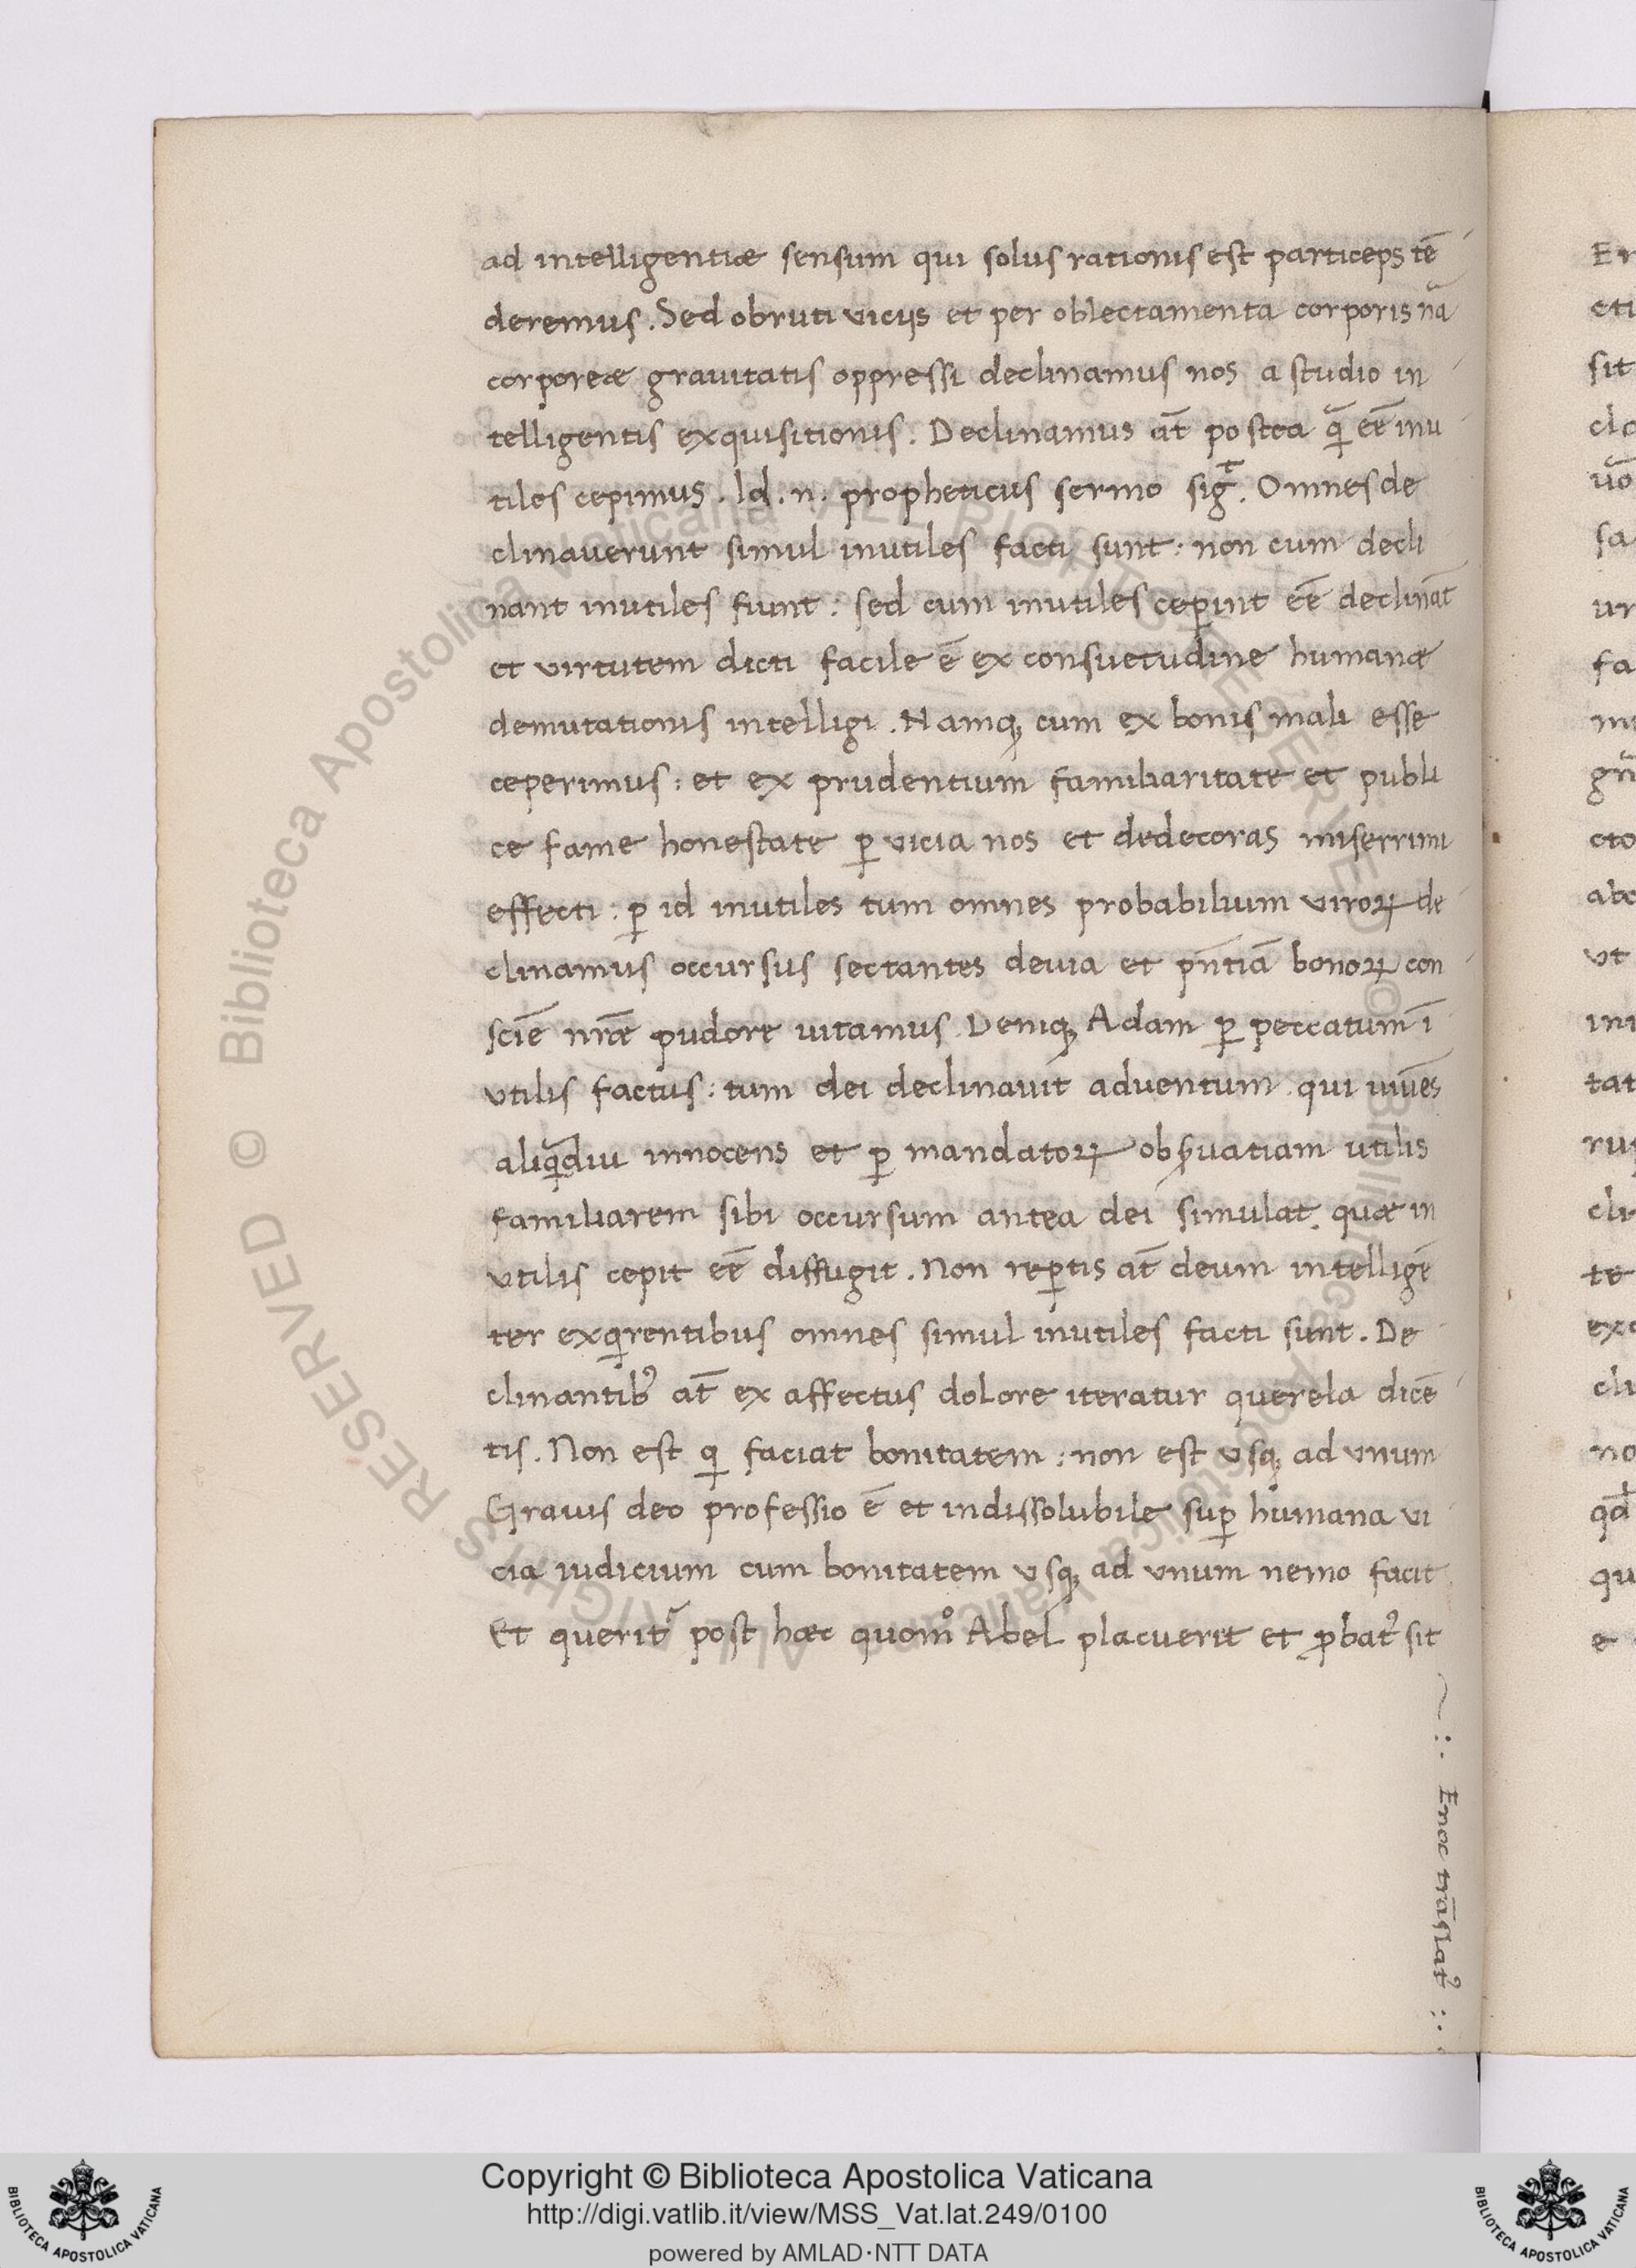 ad intelligentiæ sensum qui solus rationis est particeps tē
deremus. Sed obruti viciis et per oblectamenta corporis nã
corporeæ grauitatis oppressi declinamus nos a studio in
telligentis exquisitionis. Declinamus at̄ postea q̃ eē inu
tiles cepimus. Id .n. propheticus sermo sigt̃. Omnes de
clinauerunt simul inutiles facti sunt: non cum decli
nant inutiles fiunt: sed cum inutiles ceꝑint eē declināt
et virtutem dicti facile ē ex consuetudine humanæ
demutationis intelligi. Namqꝫ cum ex bonis mali esse
ceperimus: et ex prudentium familiaritate et publi
ce fame honestate ꝑ vicia nos et dedecoras miserrimi
effecti: ꝑ id inutiles tum omnes probabilium viroꝝ de
clinamus occursus sectantes deuia et pn̄tiā bonoꝝ con
sciē nr̄æ pudore uitamus. Deniqꝫ Adam ꝑ peccatum ī
utilis factus: tum dei declinauit aduentum. qui uiuēs
aliq̃diu innocens et ꝑ mandatoꝝ obẜuatiam utilis
familiarem sibi occursum antea dei simulat. quæ in
utilis cepit eē diffugit. Non reꝑtis at̄ deum intelligē
ter exqirentibus omnes simul inutiles facti sunt. De
clinantibꝰ at̄ ex affectus dolore iteratur querela dicē
tis. Non est qi faciat bonitatem: non est usqꝫ ad unum
Grauis deo professio ē et indissolubile suꝑ humana vi
cia iudicium cum bonitatem usqꝫ ad unum nemo facit
Et querit᷑ post hæc quomͦ Abel placuerit et ꝓbatꝰ sit
~ :. Enoc trāslatꝰ ::.
Copyright © Biblioteca Apostolica Vaticana
http://digi.vatlib.it/view/MSS_Vat.lat.249/0100
powered by AMLAD·NTT DATA